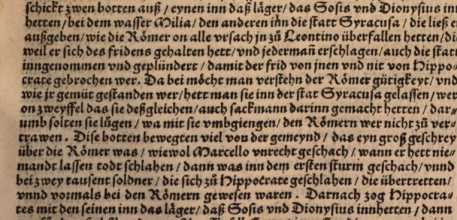 schickt zwen botten auß / eynen inn daß låger / das Sosis vnd Dionysius inn
hetten / bei dem wasser Milia / den anderen ihn die statt Syracusa / die ließ er
außgeben / wie die Römer on alle vrsach jn zů Leontino überfallen hetten / die
weil er sich des fridens gehalten hett / vnd jederman erschlagen / auch die statt
inngenommen vnd geplündert / damit der frid von jnen vnd nit von Hippo-
crate gebrochen wer. Da bei möcht man verstehn der Römer gütigkeyt / vnd
wie jr gemüt gestanden wer / hett man sie inn der stat Syracusa gelassen / wer
on zweyffel das sie deßgleichen / auch sackmann darinn gemacht hetten / dar-
umb solten sie lůgen / wa mit sie vmbgiengen / den Römern wer nicht zů ver-
trawen. Dise botten bewegten viel von der gemeynd / das eyn groß geschrey
über die Römer was / wiewol Marcello vnrecht geschach / wann er hett nie-
mandt lassen todt schlahen / dann was inn dem ersten sturm geschach / vnnd
bei zwey tausent soldner / die sich zů Hippocrate geschlahen / die übertretten /
vnnd vormals bei den Römern gewesen waren. Darnach zog Hippocra-
tes mit den seinen inn das låger / daß Sosis vnd Dionysius innhetten / dann